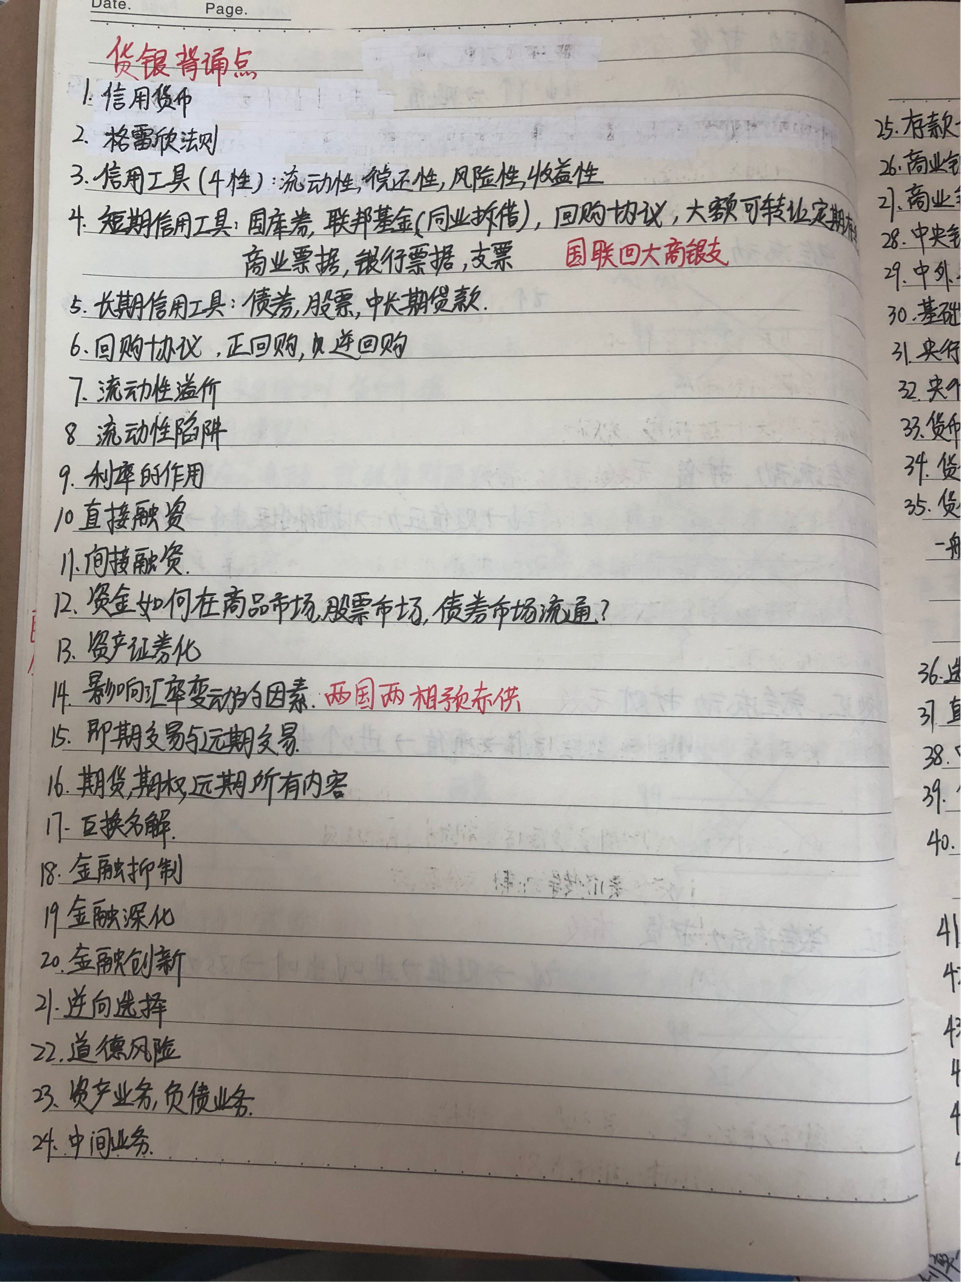 Date.
Page.
货银背诵点
1. 信用货币
2. 格雷欣法则
3. 信用工具(4性): 流动性,偿还性,风险性,收益性
4. 短期信用工具: 国库券, 联邦基金(同业拆借), 回购协议, 大额可转让定期存
商业票据, 银行票据, 支票 国联回大商银支
5. 长期信用工具: 债券, 股票, 中长期贷款.
6. 回购协议, 正回购, 逆回购
7. 流动性溢价
8 流动性陷阱
9. 利率的作用
10 直接融资
11. 间接融资.
12. 资金如何在商品市场,股票市场, 债券市场流通?
13. 资产证券化
14. 影响汇率变动的因素. 两国两相预赤供
15. 即期交易与远期交易.
16. 期货,期权,远期所有内容
17. 互换名解.
18. 金融抑制
19 金融深化
20. 金融创新
21. 逆向选择
22. 道德风险
23. 资产业务, 负债业务.
24. 中间业务.
25. 存款
26. 商业
27. 商业
28. 中央
29. 中外
30. 基础
31. 央行
32. 央
33. 货币
34. 货
35. 货
一般
36.
37. 直
38.
39.
40.
41